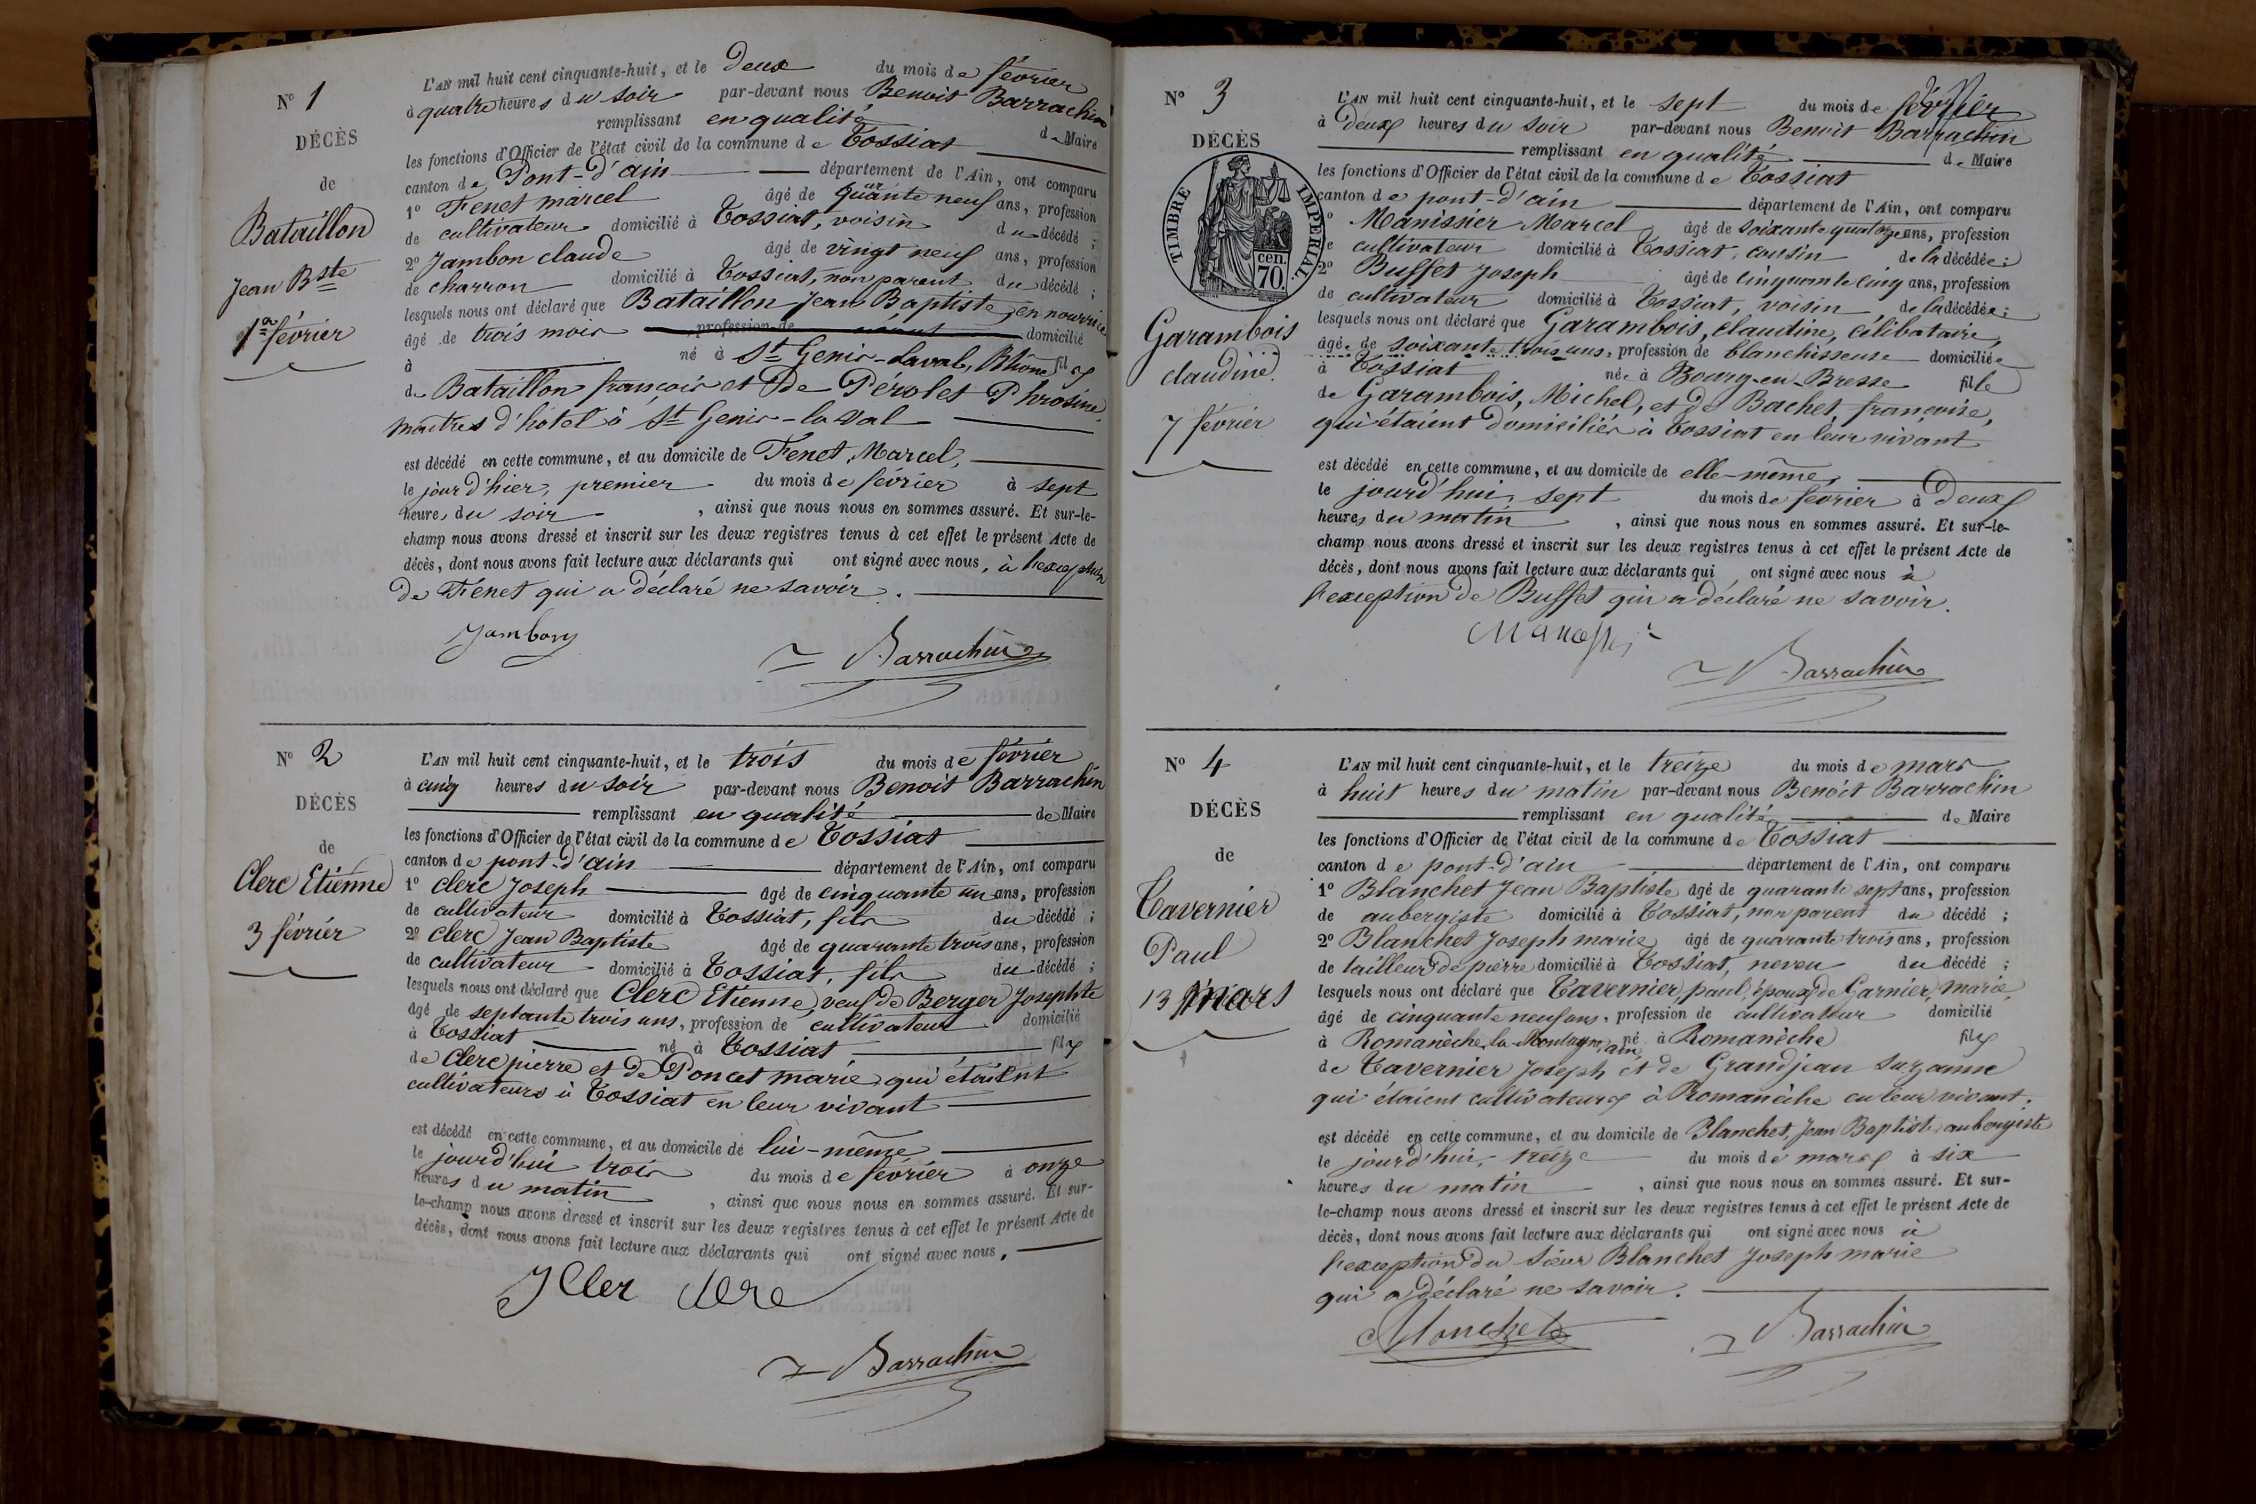 N° 1
DÉCÈS
de
Bataillon
Jean Bste
1er février
L'AN mil huit cent cinquante-huit, et le deux du mois de février
à quatre heures du soir par-devant nous Benoit Barrachin
remplissant en qualité de Maire
les fonctions d'Officier de l'état civil de la commune de Tossiat
canton de Pont-d'ain département de l'Ain, ont comparu
1° Fenet marcel âgé de quarante neuf ans, profession
de cultivateur domicilié à Tossiat, voisin du décédé ;
2° Jambon claude âgé de vingt neuf ans, profession
de charron domicilié à Tossiat, non parent du décédé ;
lesquels nous ont déclaré que Bataillon Jean Baptiste, en nourrice
âgé de trois mois profession de domicilié
à né à St Genis-Laval, Rhône fils
de Bataillon françois et de Pérolet Phrosine
maîtres d'hôtel à St Genis-la val
est décédé en cette commune, et au domicile de Fenet, Marcel,
le jour d'hier, premier du mois de février à sept
heures du soir , ainsi que nous nous en sommes assuré. Et sur-le-
champ nous avons dressé et inscrit sur les deux registres tenus à cet effet le présent Acte de
décès, dont nous avons fait lecture aux déclarants qui ont signé avec nous, à l'exception
de Fenet qui a déclaré ne savoir.
Jambon
Barrachin
N° 2
DÉCÈS
de
Clerc Etienne
3 février
L'AN mil huit cent cinquante-huit, et le trois du mois de février
à cinq heures du soir par-devant nous Benoit Barrachin
remplissant en qualité de Maire
les fonctions d'Officier de l'état civil de la commune de Tossiat
canton de pont-d'ain département de l'Ain, ont comparu
1° Clerc Joseph âgé de cinquante un ans, profession
de cultivateur domicilié à Tossiat, fils du décédé ;
2° Clerc Jean Baptiste âgé de quarante trois ans, profession
de cultivateur domicilié à Tossiat, fils du décédé ;
lesquels nous ont déclaré que Clerc Etienne, veuf de Berger Josephte
âgé de septante trois ans, profession de cultivateur domicilié
à Tossiat né à Tossiat fils
de Clerc pierre et de Poncet marie qui étaient
cultivateurs à Tossiat en leur vivant
est décédé en cette commune, et au domicile de lui-même
le jourd'hui trois du mois de février à onze
heures du matin , ainsi que nous nous en sommes assuré. Et sur-
le-champ nous avons dressé et inscrit sur les deux registres tenus à cet effet le présent Acte de
décès, dont nous avons fait lecture aux déclarants qui ont signé avec nous.
J Cler clere
Barrachin
N° 3
DÉCÈS
TIMBRE IMPÉRIAL.
cen.
70.
Garambois
claudine
7 février
L'AN mil huit cent cinquante-huit, et le sept du mois de février
à deux heures du soir par-devant nous Benoit Barrachin
remplissant en qualité de Maire
les fonctions d'Officier de l'état civil de la commune de Tossiat
canton de pont-d'ain département de l'Ain, ont comparu
1° Manissier Marcel âgé de soixante quatorze ans, profession
de cultivateur domicilié à Tossiat, cousin de la décédée ;
2° Buffet Joseph âgé de cinquante cinq ans, profession
de cultivateur domicilié à Tossiat, voisin de la décédée ;
lesquels nous ont déclaré que Garambois, claudine, célibataire,
âgée de soixante trois ans, profession de blanchisseuse domiciliée
à Tossiat née à Bourg-en-Bresse fille
de Garambois, Michel, et de Bachet, françoise,
qui étaient domiciliés à Tossiat en leur vivant
est décédé en cette commune, et au domicile de elle-même,
le jourd'hui, sept du mois de février à deux
heures du matin , ainsi que nous nous en sommes assuré. Et sur-le-
champ nous avons dressé et inscrit sur les deux registres tenus à cet effet le présent Acte de
décès, dont nous avons fait lecture aux déclarants qui ont signé avec nous à
l'exception de Buffet qui a déclaré ne savoir.
Barrachin
N° 4
DÉCÈS
de
Tavernier
Paul
13 mars
L'AN mil huit cent cinquante-huit, et le treize du mois de mars
à huit heures du matin par-devant nous Benoit Barrachin
remplissant en qualité de Maire
les fonctions d'Officier de l'état civil de la commune de Tossiat
canton de pont-d'ain département de l'Ain, ont comparu
1° Blanchet Jean Baptiste âgé de quarante sept ans, profession
de aubergiste domicilié à Tossiat, non parent du décédé ;
2° Blanchet Joseph marie âgé de quarante trois ans, profession
de tailleur de pierre domicilié à Tossiat, neveu du décédé ;
lesquels nous ont déclaré que Tavernier, paul, époux de Garnier, marie,
âgé de cinquante neuf ans, profession de cultivateur domicilié
à Romanèche, la Montagne, ain, né à Romanèche fils
de Tavernier Joseph et de Grandjean Suzanne
qui étaient cultivateurs à Romanèche en leur vivant.
est décédé en cette commune, et au domicile de Blanchet, Jean Baptiste aubergiste
le jourd'hui, treize du mois de mars à six
heures du matin , ainsi que nous nous en sommes assuré. Et sur-
le-champ nous avons dressé et inscrit sur les deux registres tenus à cet effet le présent Acte de
décès, dont nous avons fait lecture aux déclarants qui ont signé avec nous à
l'exception du sieur Blanchet Joseph marie
qui a déclaré ne savoir.
Blanchet
Barrachin